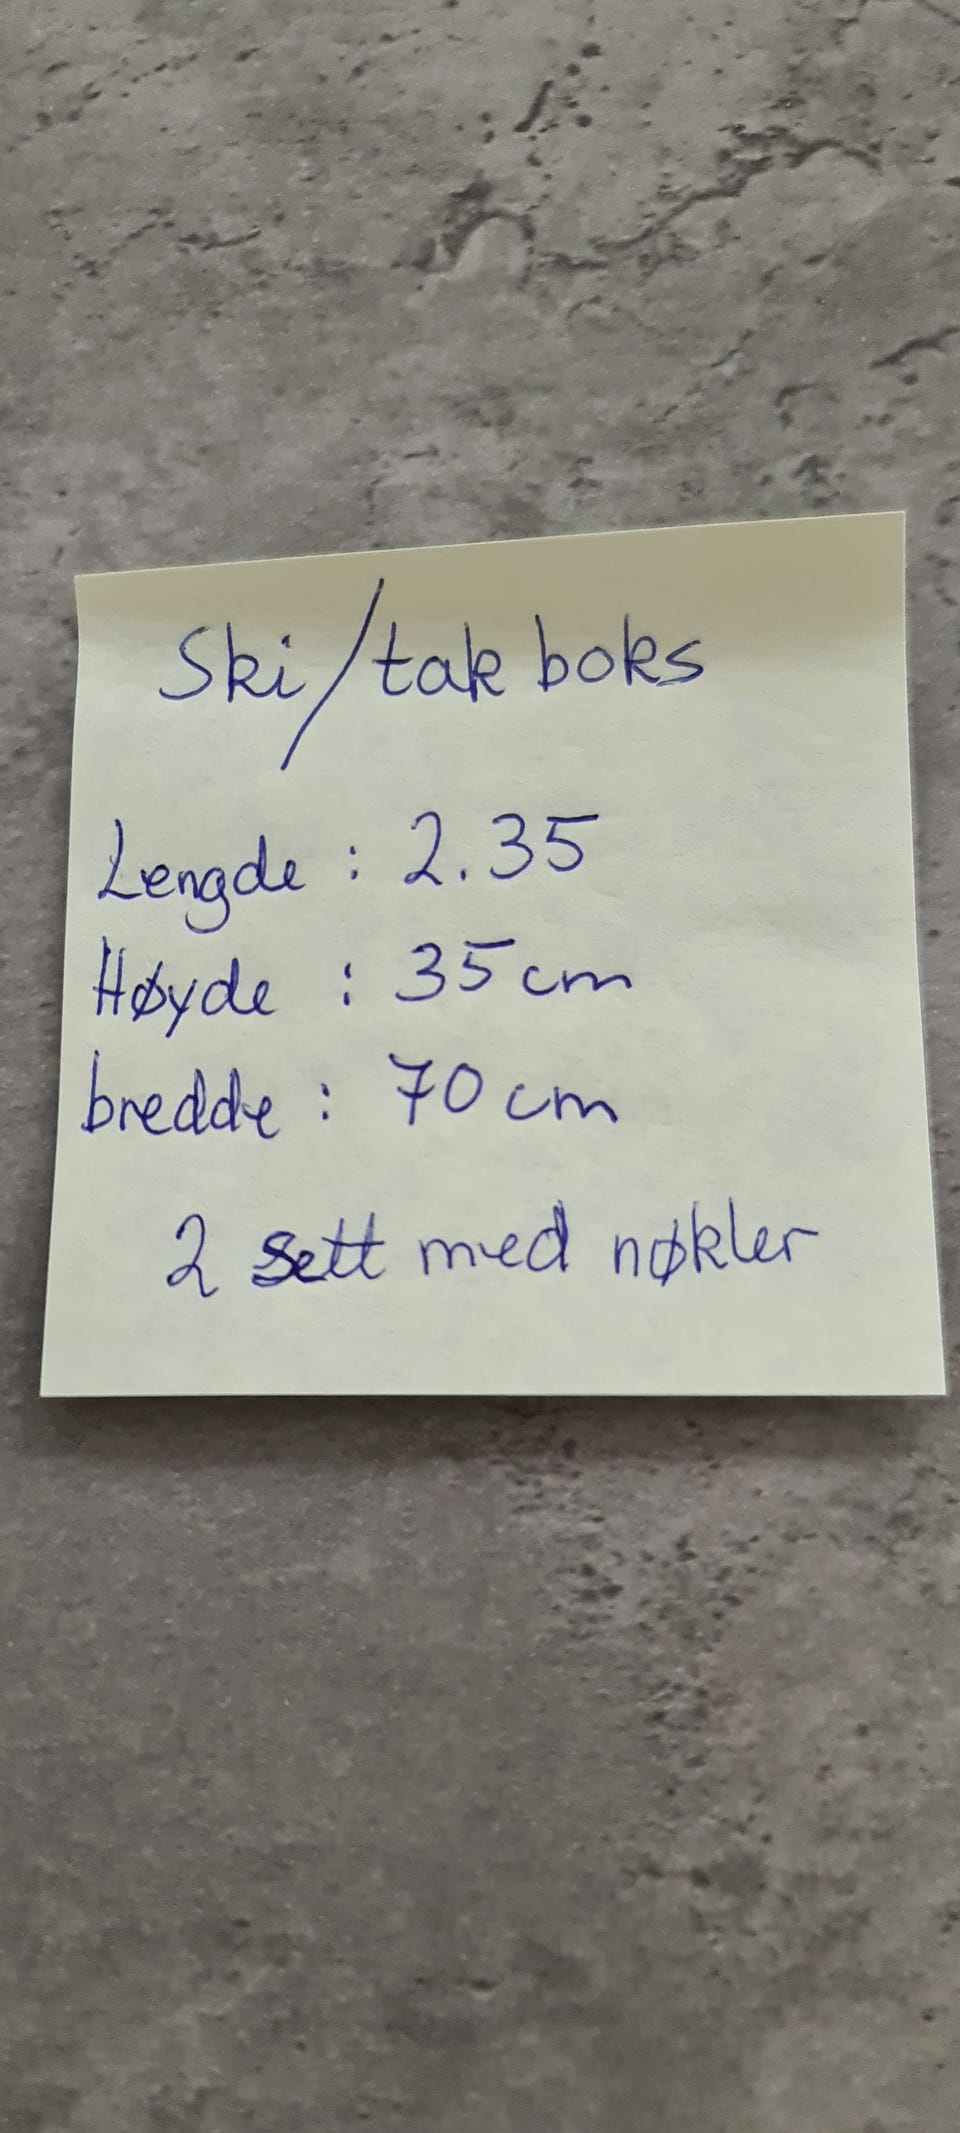 Ski/tak boks
Lengde : 2.35
Høyde : 35 cm
bredde : 70 cm
2 sett med nøkler